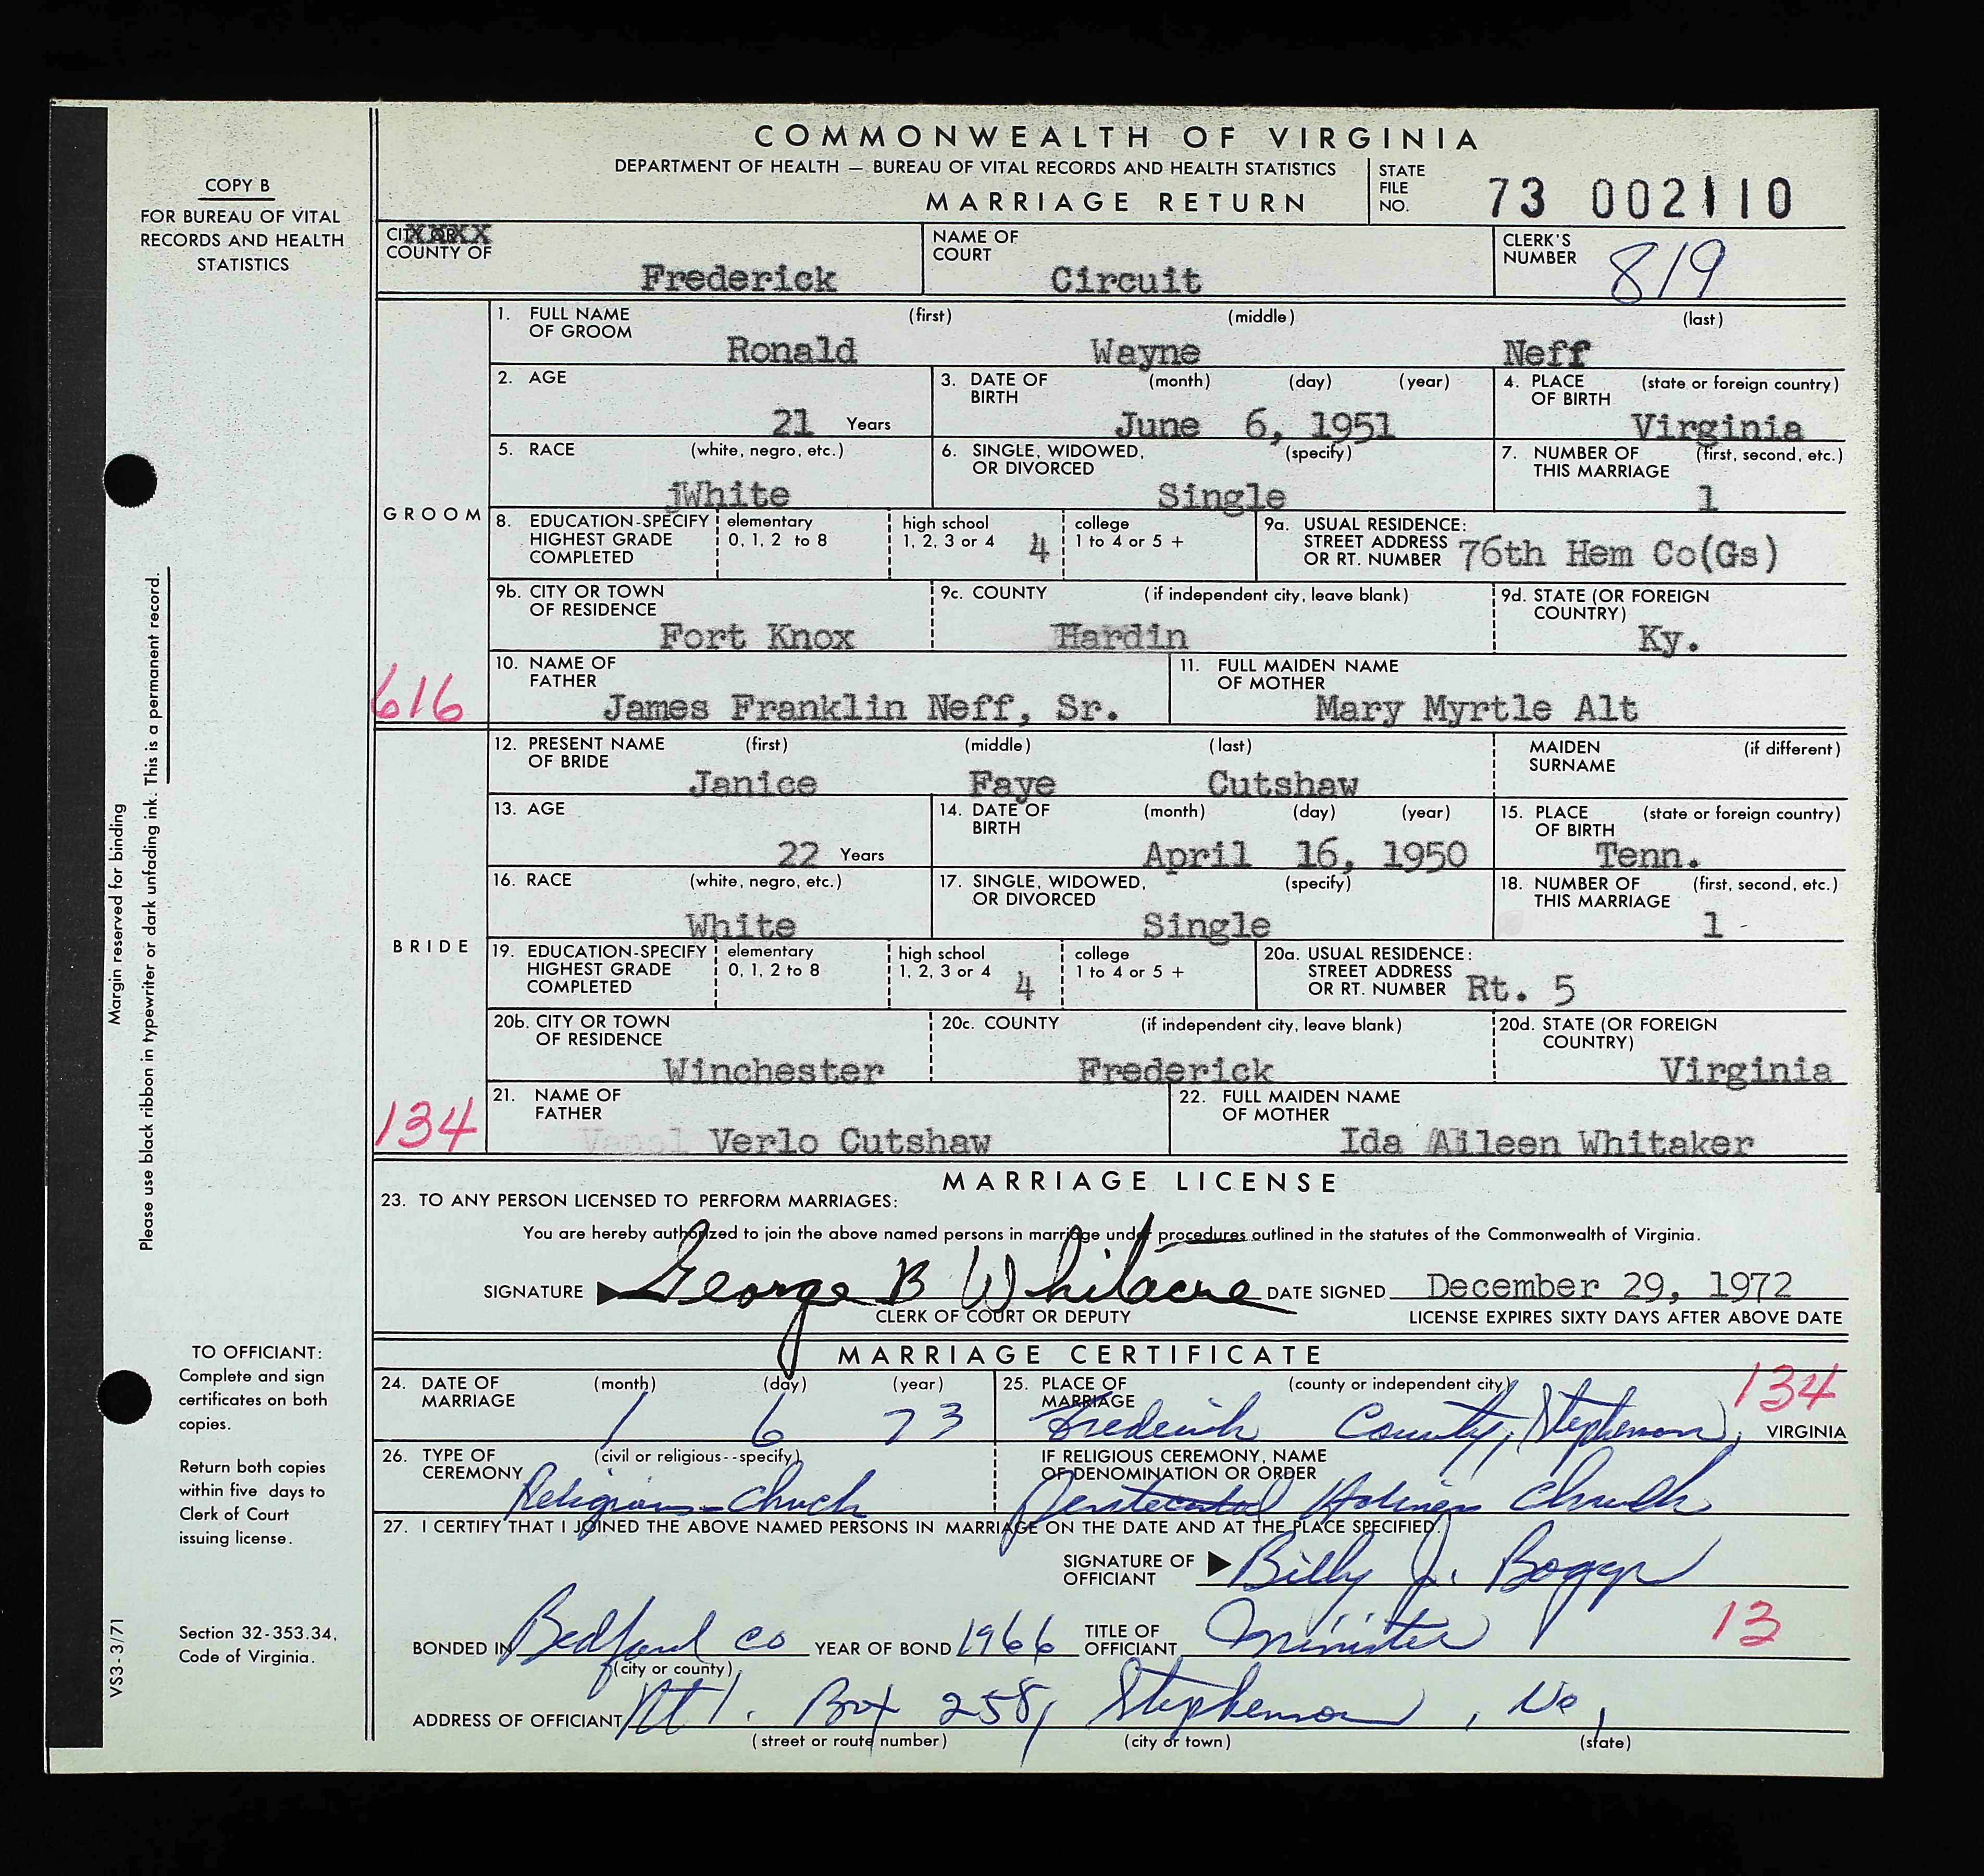 COMMONWEALTH OF VIRGINIA
DEPARTMENT OF HEALTH — BUREAU OF VITAL RECORDS AND HEALTH STATISTICS
MARRIAGE RETURN
STATE FILE NO. 73 002110
COPY B
FOR BUREAU OF VITAL
RECORDS AND HEALTH
STATISTICS
CITY OR XXXX
COUNTY OF Frederick
NAME OF COURT Circuit
CLERK'S NUMBER 819
GROOM
1. FULL NAME OF GROOM (first) (middle) (last)
Ronald Wayne Neff
2. AGE 21 Years
3. DATE OF BIRTH (month) (day) (year) June 6, 1951
4. PLACE OF BIRTH (state or foreign country) Virginia
5. RACE (white, negro, etc.) jWhite
6. SINGLE, WIDOWED, OR DIVORCED (specify) Single
7. NUMBER OF THIS MARRIAGE (first, second, etc.) 1
8. EDUCATION-SPECIFY HIGHEST GRADE COMPLETED
elementary 0, 1, 2 to 8
high school 1, 2, 3 or 4 4
college 1 to 4 or 5 +
9a. USUAL RESIDENCE: STREET ADDRESS OR RT. NUMBER 76th Hem Co(Gs)
9b. CITY OR TOWN OF RESIDENCE Fort Knox
9c. COUNTY (if independent city, leave blank) Hardin
9d. STATE (OR FOREIGN COUNTRY) Ky.
616
10. NAME OF FATHER James Franklin Neff, Sr.
11. FULL MAIDEN NAME OF MOTHER Mary Myrtle Alt
BRIDE
12. PRESENT NAME OF BRIDE (first) (middle) (last)
Janice Faye Cutshaw
MAIDEN SURNAME (if different)
13. AGE 22 Years
14. DATE OF BIRTH (month) (day) (year) April 16, 1950
15. PLACE OF BIRTH (state or foreign country) Tenn.
16. RACE (white, negro, etc.) White
17. SINGLE, WIDOWED, OR DIVORCED (specify) Single
18. NUMBER OF THIS MARRIAGE (first, second, etc.) 1
19. EDUCATION-SPECIFY HIGHEST GRADE COMPLETED
elementary 0, 1, 2 to 8
high school 1, 2, 3 or 4 4
college 1 to 4 or 5 +
20a. USUAL RESIDENCE: STREET ADDRESS OR RT. NUMBER Rt. 5
20b. CITY OR TOWN OF RESIDENCE Winchester
20c. COUNTY (if independent city, leave blank) Frederick
20d. STATE (OR FOREIGN COUNTRY) Virginia
134
21. NAME OF FATHER Verlo Cutshaw
22. FULL MAIDEN NAME OF MOTHER Ida Aileen Whitaker
MARRIAGE LICENSE
23. TO ANY PERSON LICENSED TO PERFORM MARRIAGES:
You are hereby authorized to join the above named persons in marriage under procedures outlined in the statutes of the Commonwealth of Virginia.
SIGNATURE George B Whitacre DATE SIGNED December 29, 1972
CLERK OF COURT OR DEPUTY LICENSE EXPIRES SIXTY DAYS AFTER ABOVE DATE
MARRIAGE CERTIFICATE
24. DATE OF MARRIAGE (month) (day) (year) 1 6 73
25. PLACE OF MARRIAGE (county or independent city) Frederick County, Stephenson, VIRGINIA
134
26. TYPE OF CEREMONY (civil or religious--specify) Religious-Church
IF RELIGIOUS CEREMONY, NAME OF DENOMINATION OR ORDER Pentecostal Holiness Church
27. I CERTIFY THAT I JOINED THE ABOVE NAMED PERSONS IN MARRIAGE ON THE DATE AND AT THE PLACE SPECIFIED.
SIGNATURE OF OFFICIANT Billy J. Boggs
BONDED IN Bedford Co (city or county) YEAR OF BOND 1966 TITLE OF OFFICIANT Minister
13
ADDRESS OF OFFICIANT Rt 1. Box 258, Stephenson, Va,
(street or route number) (city or town) (state)
Margin reserved for binding
Please use black ribbon in typewriter or dark unfading ink. This is a permanent record.
TO OFFICIANT:
Complete and sign
certificates on both
copies.
Return both copies
within five days to
Clerk of Court
issuing license.
Section 32-353.34,
Code of Virginia.
VS3-3/71